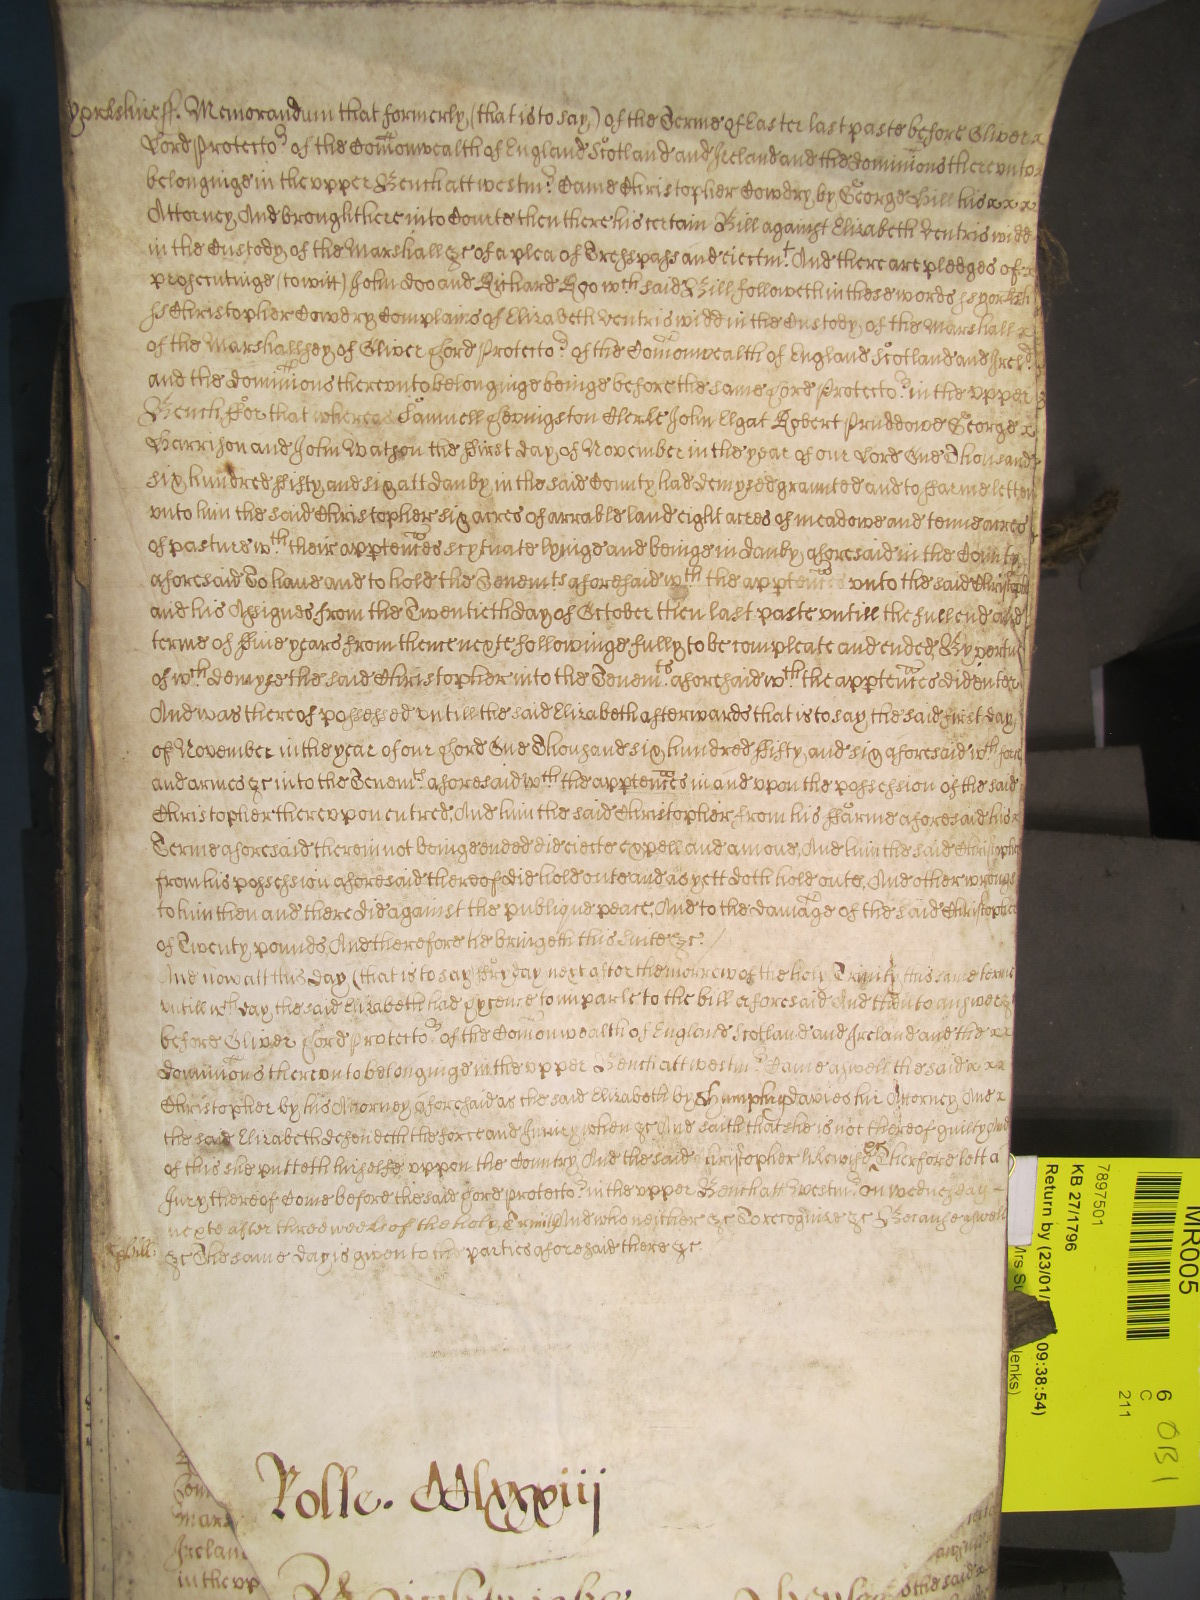 Yorkshire ss. Memorandum that formerly (that is to say,) of the Terme of Easter last paste before Oliver x
Lord Protector of the Comonwealth of England Scotland and Ireland and the dominions therevnto x
belonginge in the vpper Bench att westmr. Came Christopher Cowdry by George Hill his x x x
Attorney, And brought here into Courte then there his certain Bill against Elizabeth Ventris widd
in the Custody of the Marshall &c of a plea of Trespass and eiectmt. And there are pledges of x
prosecutinge (to witt) John Doo and Richard Roo wch said Bill followeth in these words ss yorksh
ss Christopher Cowdry Complains of Elizabeth Ventris widd in the Custody of the Marshall x
of the Marshallsey of Oliver Lord Protector of the Comonwealth of England Scotland and Ireld
and the dominions therevnto belonginge beinge before the same Lord Protector in the vpper
Bench ffor that whereas Samuell Levingston Clerke John Elgat Robert Pruddowe George x
Harrison and John Watson the ffirst day of November in the year of our Lord One Thousand
six hundred ffifty and six att Danby in the said County had demysed graunted and to ffarme letten
vnto him the said Christopher six acres of arrable land eight acres of meadowe and tenne acres
of pasture wth their apptences scytuate lyinge and beinge in Danby aforesaid in the County
aforesaid To haue and to hold the Tenemts aforesaid wth the apptences vnto the said Christopher
and his Assignes from the Twentieth day of October then last paste vntill the full end and
terme of ffiue years from thence nexte followinge fully to be compleate and ended, By vertu
of wch demyse the said Christopher into the Tenemts aforesaid wth the apptences did enter
And was thereof possessed vntill the said Elizabeth afterwards that is to say, the said first day
of November in the year of our Lord One Thousand six hundred ffifty and six aforesaid wth force
and armes &c into the Tenemts aforesaid wth the apptences in and vpon the possession of the said
Christopher therevpon entred, And him the said Christopher from his ffarme aforesaid his x
Terme aforesaid therein not beinge ended did eiecte expell and amoue, And him the said Christopher
from his possession aforesaid thereof did hold oute and as yett doth hold oute, And other wrongs
to him then and there did against the publique peace, And to the damage of the said Christopher
of Twenty pounds, And therefore he bringeth this suite &c. /
And now att this day (that is to say) ffryday next after the morrow of the holy Trinity this same terme
vntill wch day the said Elizabeth had lycence to imparle to the bill aforesaid And then to answer &c
before Oliver Lord Protector of the Comonwealth of England Scotland and Ireland and the x x
dominions therevnto belonginge in the vpper Bench att westmr. Came aswell the said x x x
Christopher by his Attorney aforesaid as the said Elizabeth by Humphry Davies hir Attorney And x
the said Elizabeth defendeth the force and Iniury when &c And saith that she is not thereof guilty And
of this she putteth hirselfe vppon the Country And the said Christopher likewise &c Therfore lett a
Jury thereof Come before the said Lord Protector in the vpper Bench att westmr on wednesday
nexte after three weekes of the holy Trinity And who neither &c To recognize &c Because aswell
&c The same day is given to the parties aforesaid there &c.
Rolle. CClxxviij
Com
Mars
Irelan
in the vp
MR005
7897501
KB 27/1796
Return by (23/01/ 09:38:54)
6
C
211
OB1